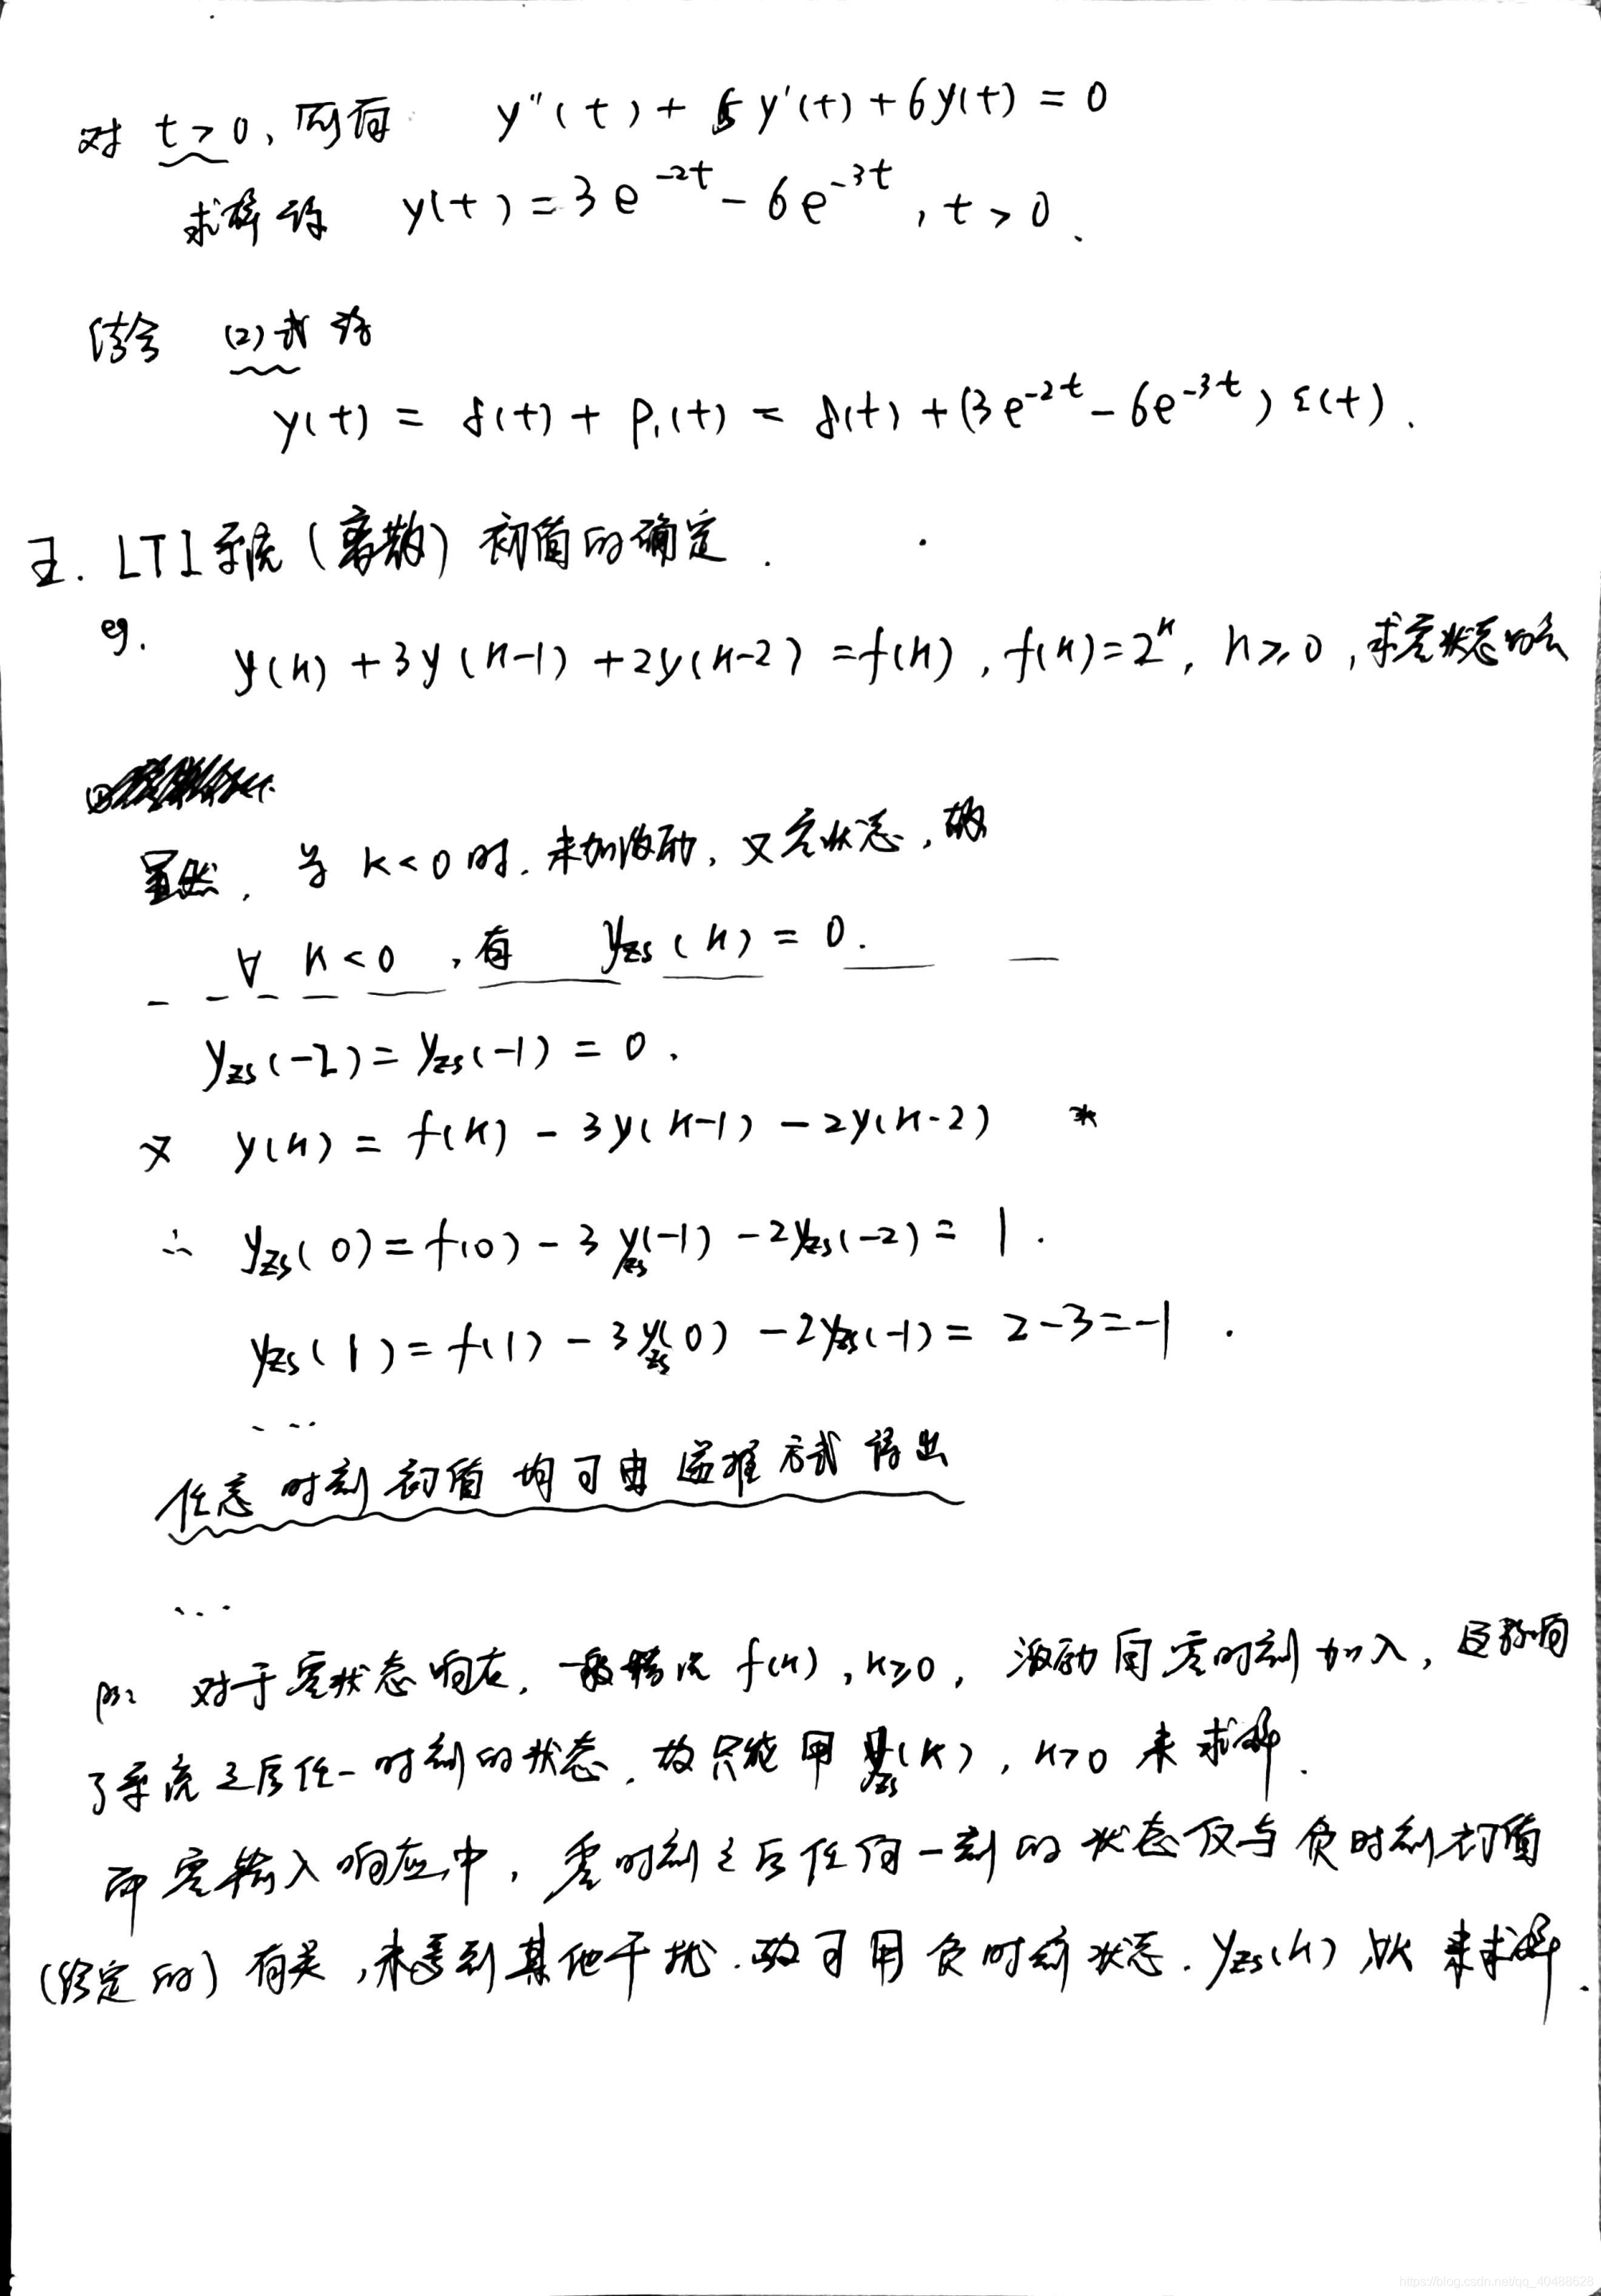 对 t>0, 则有 y''(t) + 5y'(t) + 6y(t) = 0
求解得 y(t) = 3e^{-2t} - 6e^{-3t}, t>0.
结合 (2)式 得
y(t) = δ(t) + p₁(t) = δ(t) + (3e^{-2t} - 6e^{-3t}) ε(t).
五. LTI系统(离散) 初值的确定.
eg. y(k) + 3y(k-1) + 2y(k-2) = f(k), f(k) = 2^k, k≥0, 求零状态响应
显然, 当 k<0 时, 未加激励, 又零状态, 故
∀ k<0, 有 y_{zs}(k) = 0.
y_{zs}(-2) = y_{zs}(-1) = 0.
又 y(k) = f(k) - 3y(k-1) - 2y(k-2) *
∴ y_{zs}(0) = f(0) - 3y_{zs}(-1) - 2y_{zs}(-2) = 1.
y_{zs}(1) = f(1) - 3y_{zs}(0) - 2y_{zs}(-1) = 2-3 = -1.
...
任意时刻初值均可由递推方式得出
...
ps: 对于零状态响应, 一般情况 f(k), k≥0, 激励自零时刻加入, 影响
了系统之后任一时刻的状态, 故只能用 y_{zs}(k), k>0 来求解.
而零输入响应中, 零时刻之后任何一刻的状态仅与负时刻初值
(给定的) 有关, 未受到其他干扰. 故可用负时刻状态. y_{zs}(k), ∀k 来求解.
https://blog.csdn.net/qq_40488628